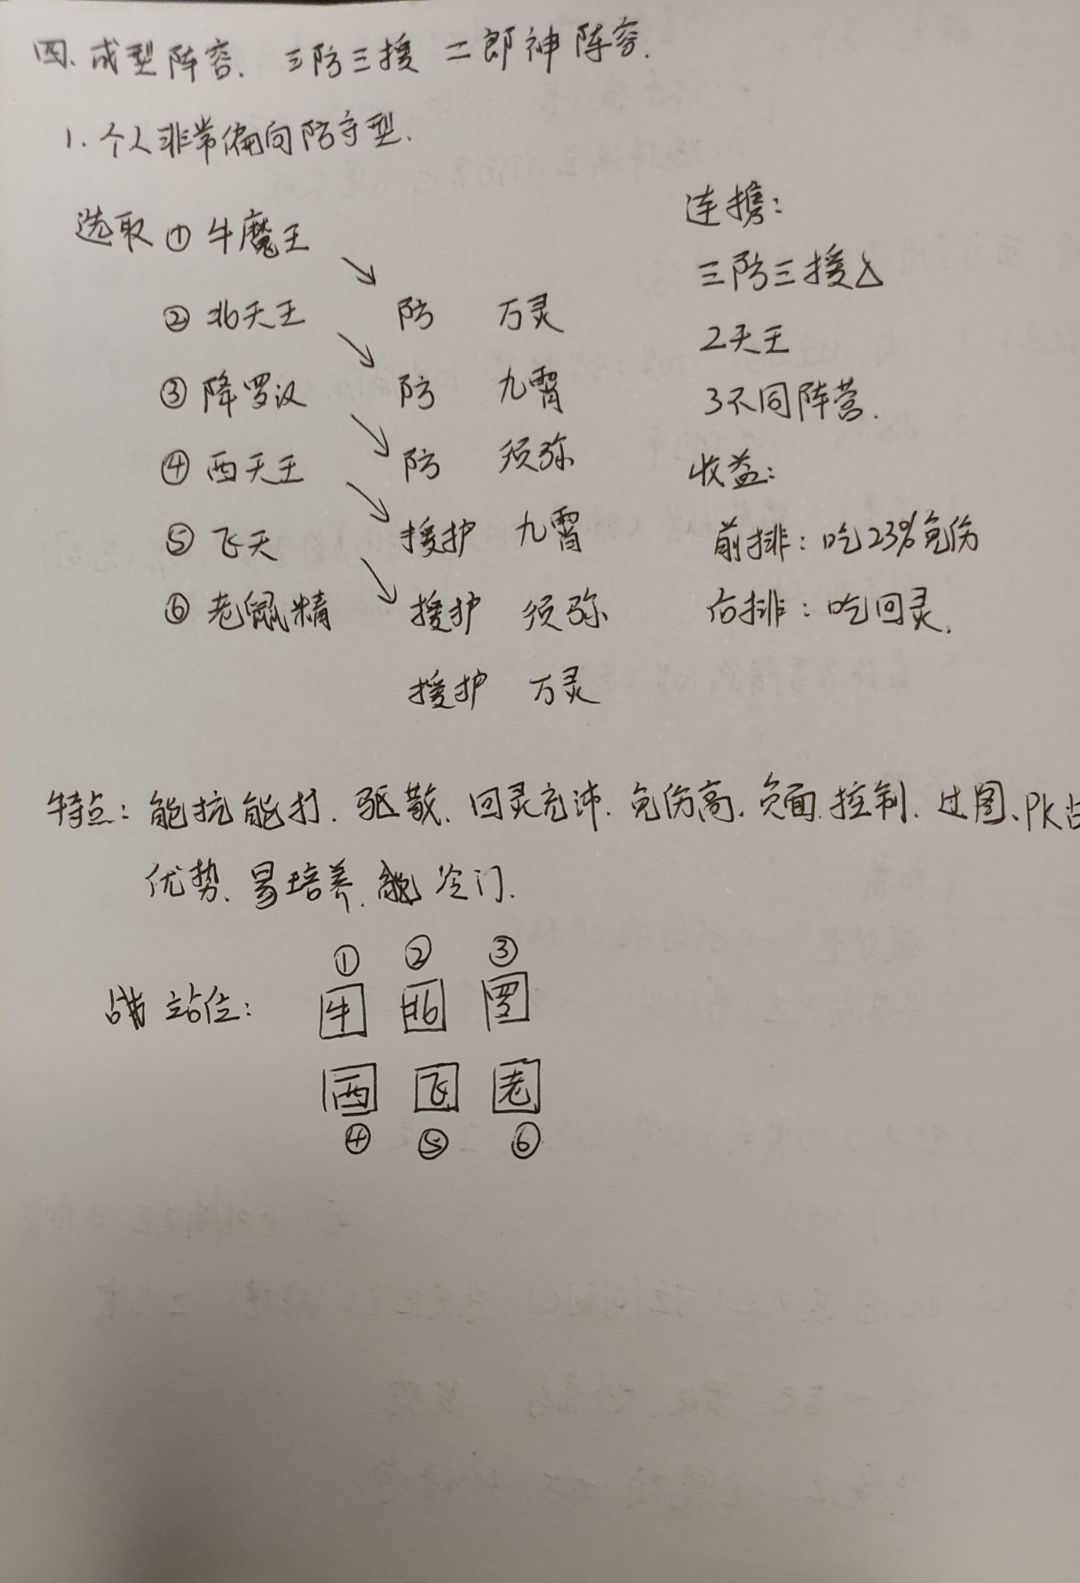 四、成型阵容. 三防三援 二郎神阵容.
1. 个人非常偏向防守型.
选取 ① 牛魔王
② 北天王 防 万灵
③ 降罗汉 防 九霄
④ 西天王 防 须弥
⑤ 飞天 援护 九霄
⑥ 老鼠精 援护 须弥
援护 万灵
连携:
三防三援△
2天王
3不同阵营.
收益:
前排: 吃23%免伤
后排: 吃回灵.
特点: 能抗能打. 驱散. 回灵充沛. 免伤高. 负面. 控制. 过图、PK占
优势. 易培养. 冷门.
站位:
① ② ③
牛 北 罗
西 飞 老
④ ⑤ ⑥